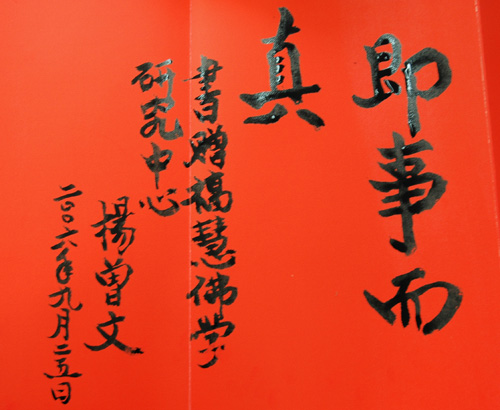 即事而
真
書贈福慧佛学
研究中心
楊曽文
二〇〇六年九月二五日